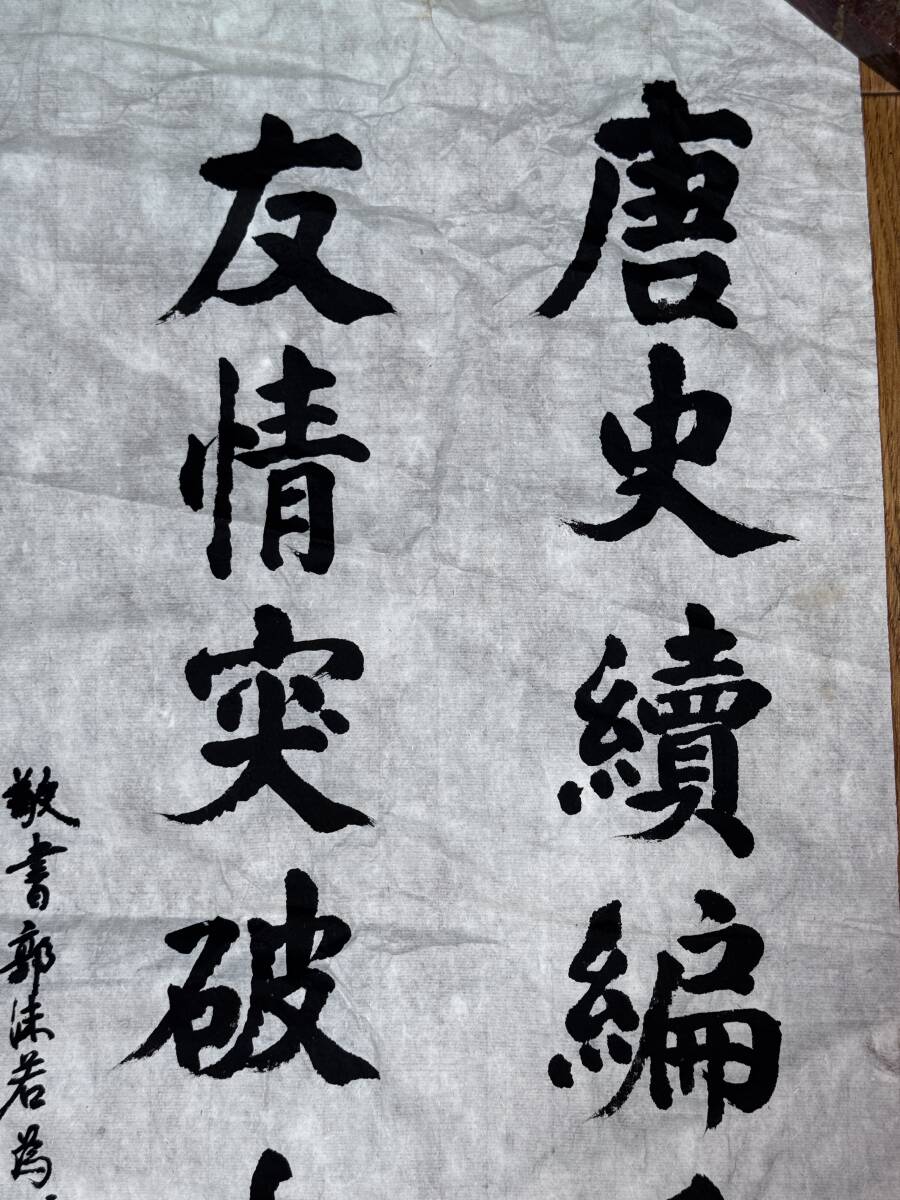 唐史續編
友情突破
敬書郭沫若為